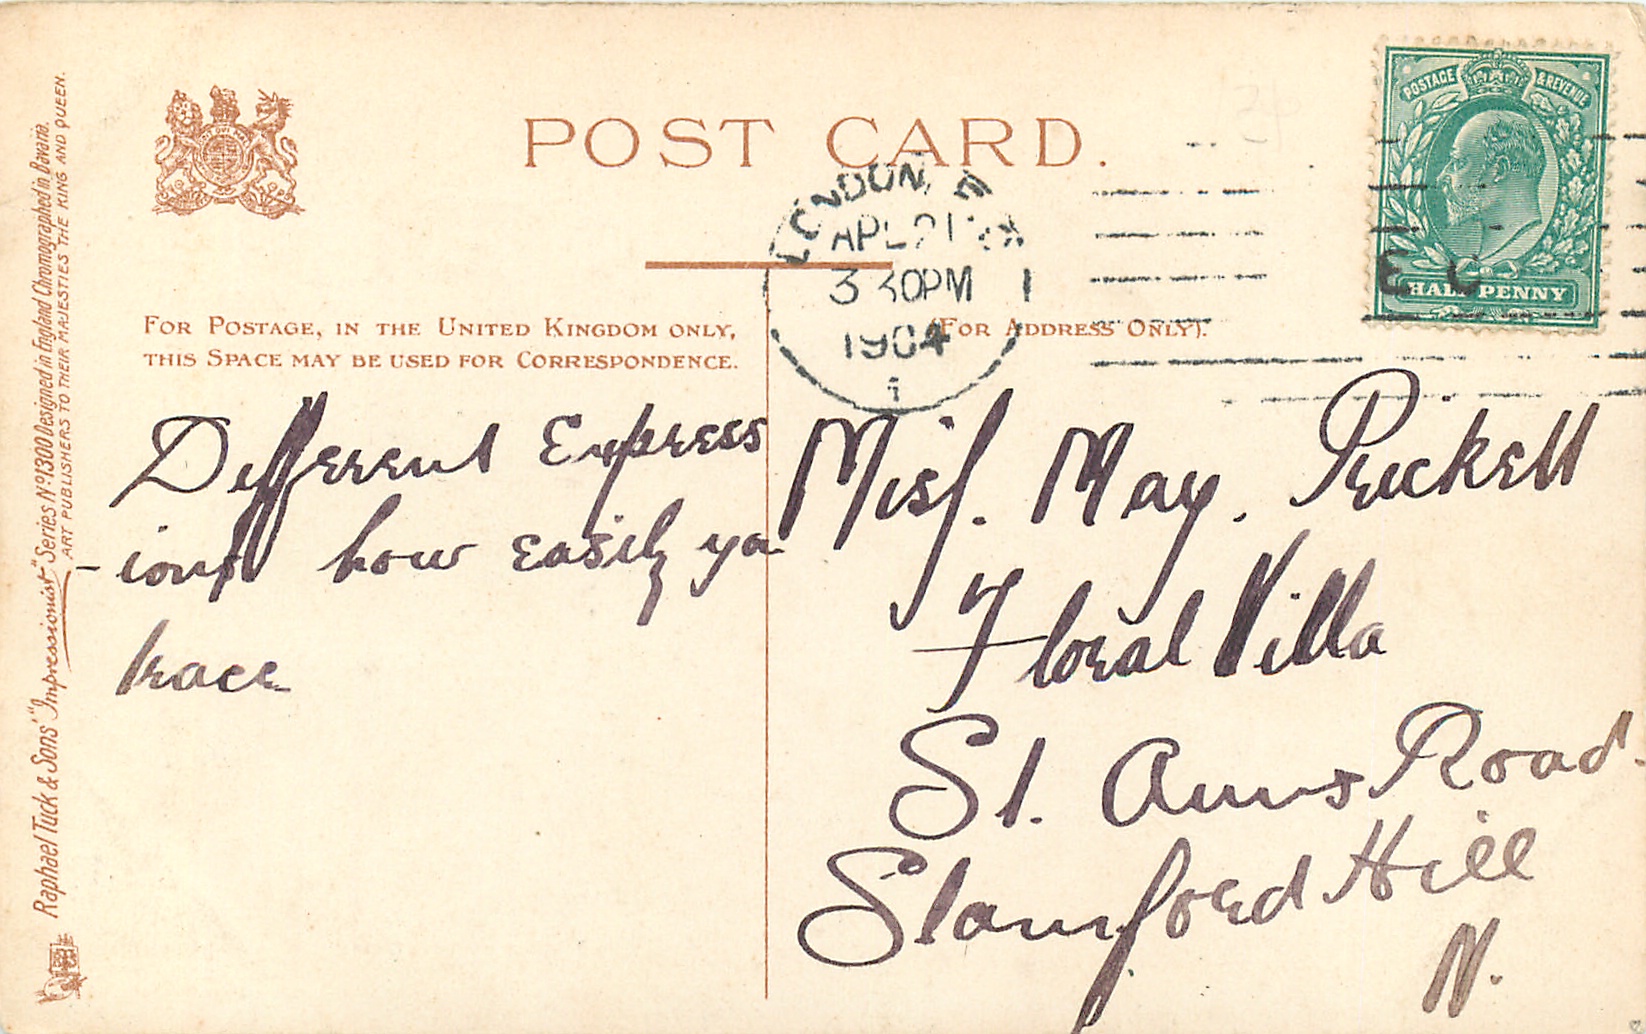 POST CARD.
POSTAGE & REVENUE
HALF PENNY
LONDON, E.C
APL 21
3 30PM
1904
E C
FOR POSTAGE, IN THE UNITED KINGDOM ONLY,
THIS SPACE MAY BE USED FOR CORRESPONDENCE.
(FOR ADDRESS ONLY).
Different Express
-ions how easily ya
trace
Miss. May. Prickett
Floral Villa
St. Anns Road.
Stamford Hill
N.
Raphael Tuck & Sons' "Impressionist" Series No 1300 Designed in England Chromographed in Bavaria.
ART PUBLISHERS TO THEIR MAJESTIES THE KING AND QUEEN.